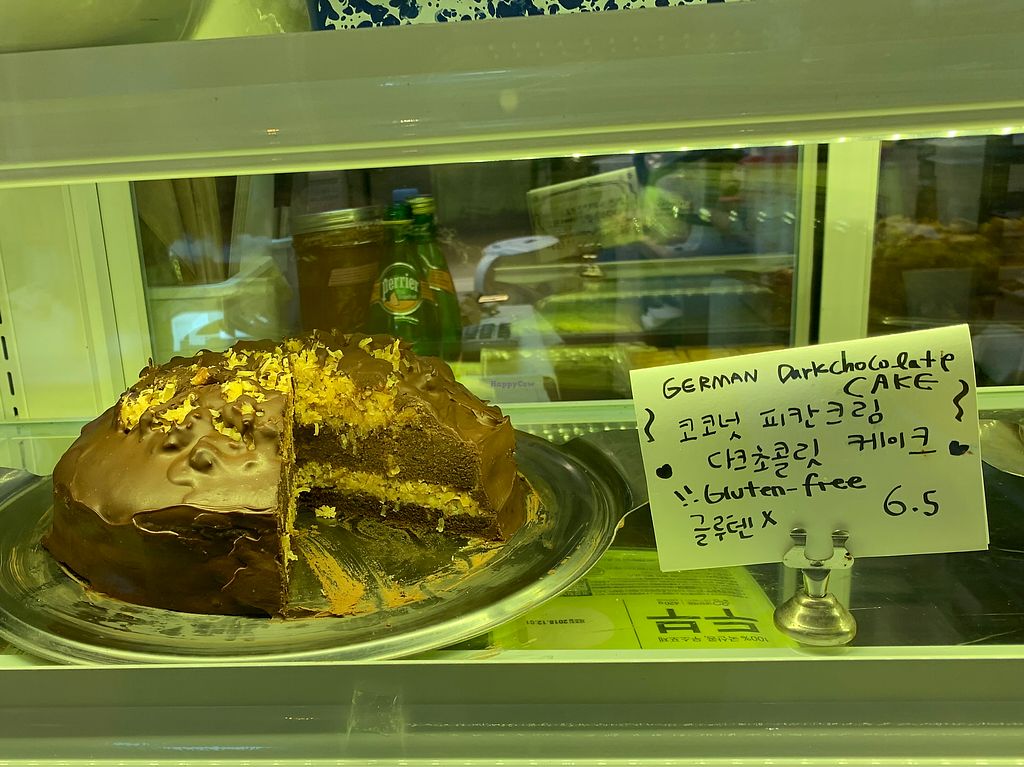 Perrier
HappyCow
GERMAN Darkchocolate
CAKE
코코넛 피칸크림
다크초콜릿 케이크
!! Gluten-free
글루텐 X
6.5
두부